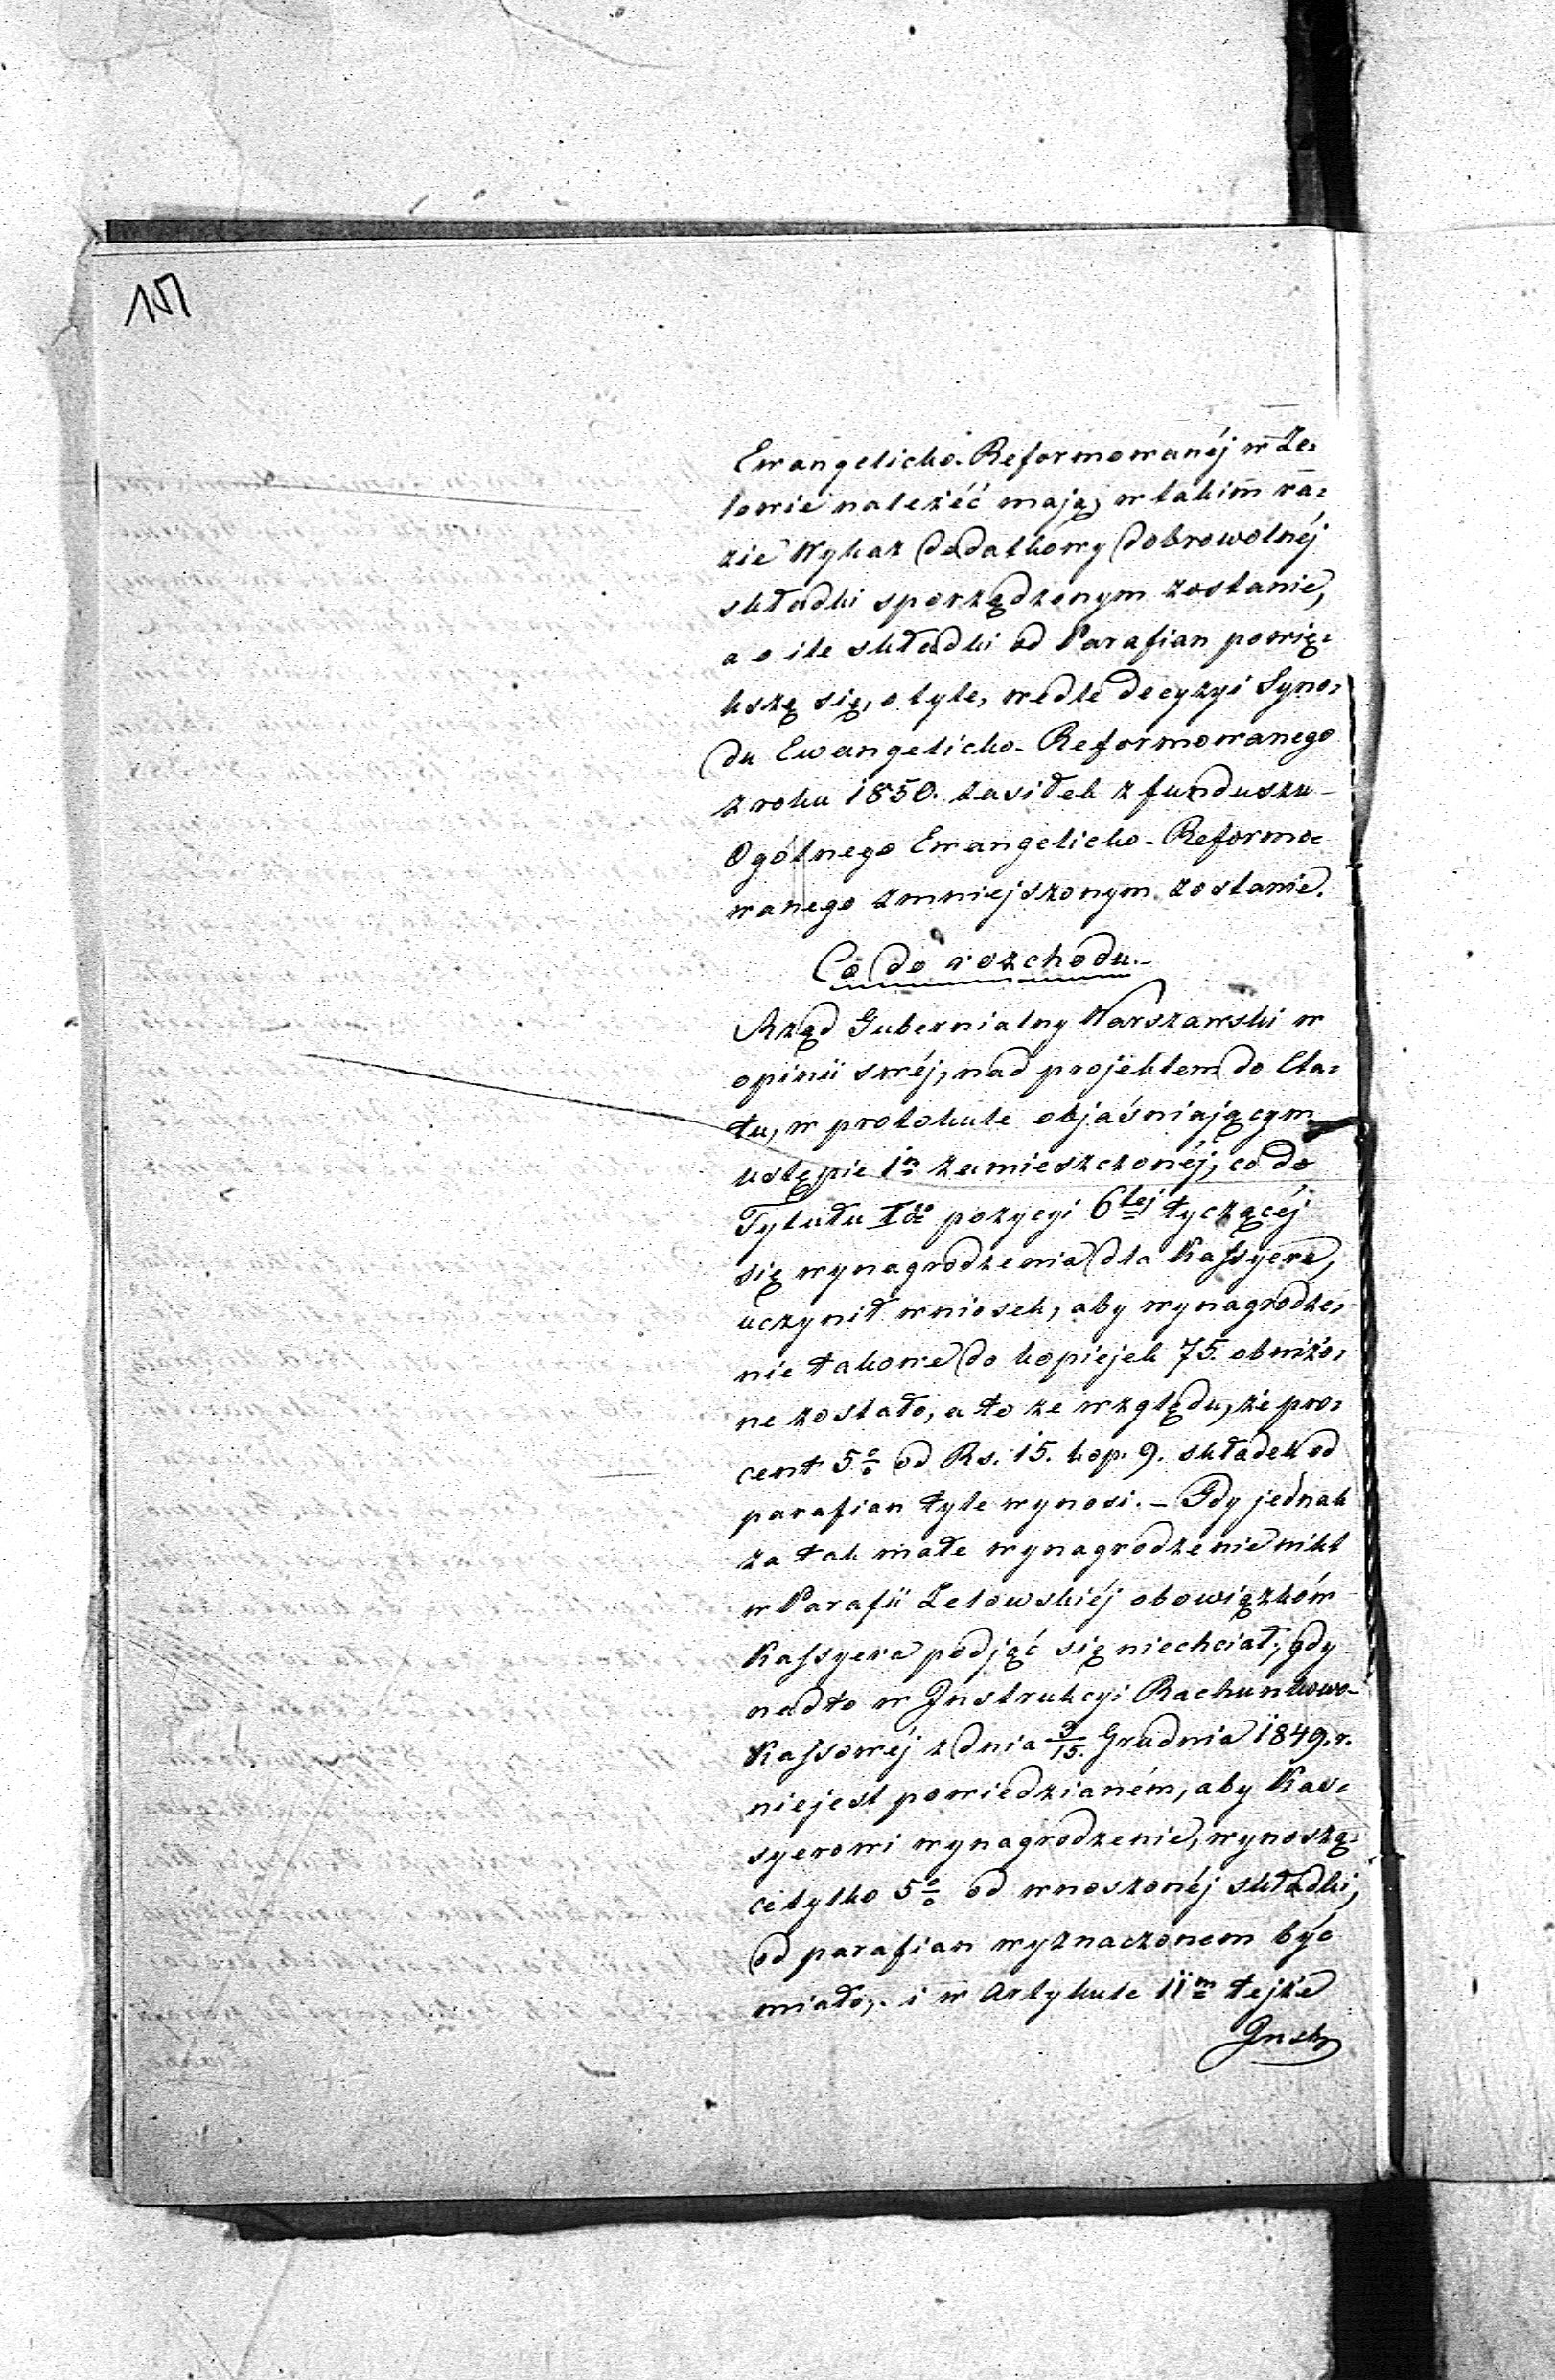 157
Ewangelicko-Reformowanéj w Ze=
lowie należéć mają, w takim ra=
zie Wykaz dodatkowy dobrowolnéj
składki sporządzonym zostanie,
a o ile składki od Parafian powię=
kszą się, o tyle, wedle decyzyi Syno=
du Ewangelicko-Reformowanego
z roku 1850. zasiłek z funduszu
Ogólnego Ewangelicko-Reformo=
wanego zmniejszonym zostanie.
Co do rozchodu.-
Rząd Gubernialny Warszawski w
opinii swéj, nad projektem do Eta=
tu, w protokule objaśniającym
ustępie 1m zamieszczonéj, co do
Tytułu Igo pozycyi 6téj tyczącéj
się wynagrodzenia dla Kassyera,
uczynił wniosek, aby wynagrodze=
nie takowe do kopiejek 75. obniżo=
ne zostało, a to ze względu, że pro=
cent 5% od Rs. 15. kop. 9. składek od
parafian tyle wynosi. - Gdy jednak
za tak małe wynagrodzenie nikt
w Parafii Zelowskiéj obowiązków
Kassyera podjąć się niechciał, gdy
nadto w Instrukcyi Rachunkowo-
Kassowéj z dnia 3/15. Grudnia 1849. r.
niejest powiedzianém, aby Kas=
syerowi wynagrodzenie, wynoszą=
ce tylko 5% od wnoszonéj składki,
od parafian wyznaczonem być
miało, i w Artykule 11m tejże
Instr